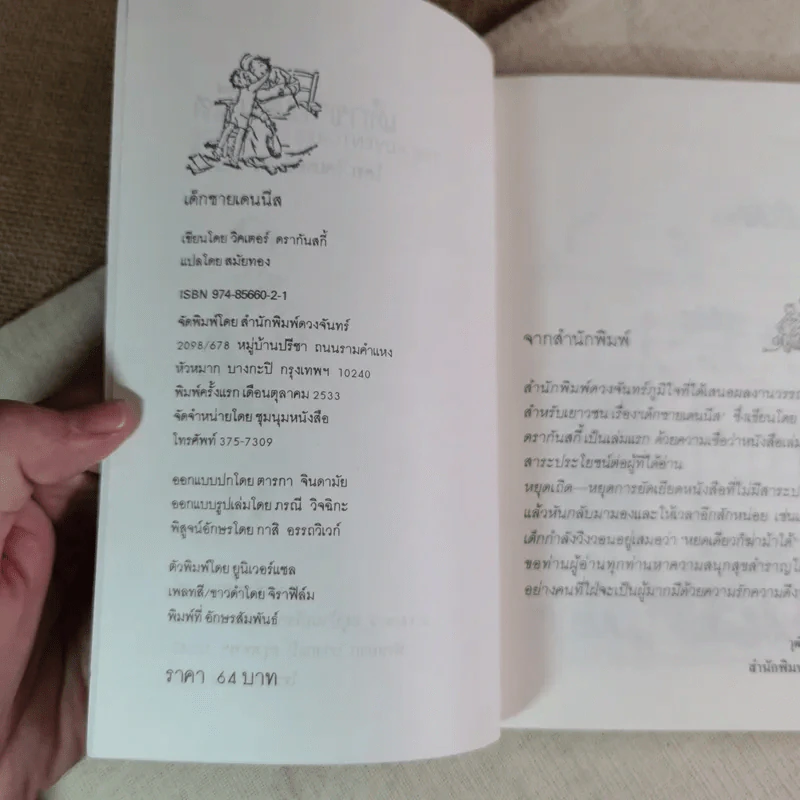 เด็กชายเดนนีส
เขียนโดย วิคเตอร์ ดรากันสกี้
แปลโดย สมัยทอง
ISBN 974-85660-2-1
จัดพิมพ์โดย สำนักพิมพ์ดวงจันทร์
2098/678 หมู่บ้านปรีชา ถนนรามคำแหง
หัวหมาก บางกะปิ กรุงเทพฯ 10240
พิมพ์ครั้งแรก เดือนตุลาคม 2533
จัดจำหน่ายโดย ชุมนุมหนังสือ
โทรศัพท์ 375-7309
ออกแบบปกโดย ดารกา จินดามัย
ออกแบบรูปเล่มโดย ภรณี วิจฉิกะ
พิสูจน์อักษรโดย กาสิ อรรถวิเวก์
ตัวพิมพ์โดย ยูนิเวอร์แซล
เพลทสี/ขาวดำโดย จิราฟิล์ม
พิมพ์ที่ อักษรสัมพันธ์
ราคา 64 บาท
จากสำนักพิมพ์
สำนักพิมพ์ดวงจันทร์ภูมิใจที่ได้เสนอผลงานวรร
สำหรับเยาวชน เรื่อง 'เด็กชายเดนนีส' ซึ่งเขียนโดย
ดรากันสกี้ เป็นเล่มแรก ด้วยความเชื่อว่าหนังสือเล่ม
สาระประโยชน์ต่อผู้ที่ได้อ่าน
หยุดเถิด—หยุดการยัดเยียดหนังสือที่ไม่มีสาระป
แล้วหันกลับมามองและให้เวลาอีกสักหน่อย เช่น
เด็กกำลังวิงวอนอยู่เสมอว่า 'หยดเดียวก็ฆ่าม้าได้'
ขอท่านผู้อ่านทุกท่านหาความสนุกสุขสำราญ
อย่างคนที่ใฝ่จะเป็นผู้มากมีด้วยความรักความดี
สำนักพิม